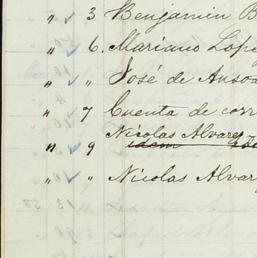 " 3 Benjamin B
" 6. Mariano Lope
" " José de Ansoa
" 7 Cuenta de corr
Nicolas Alvarez
" 9 idem
" " Nicolas Alvar